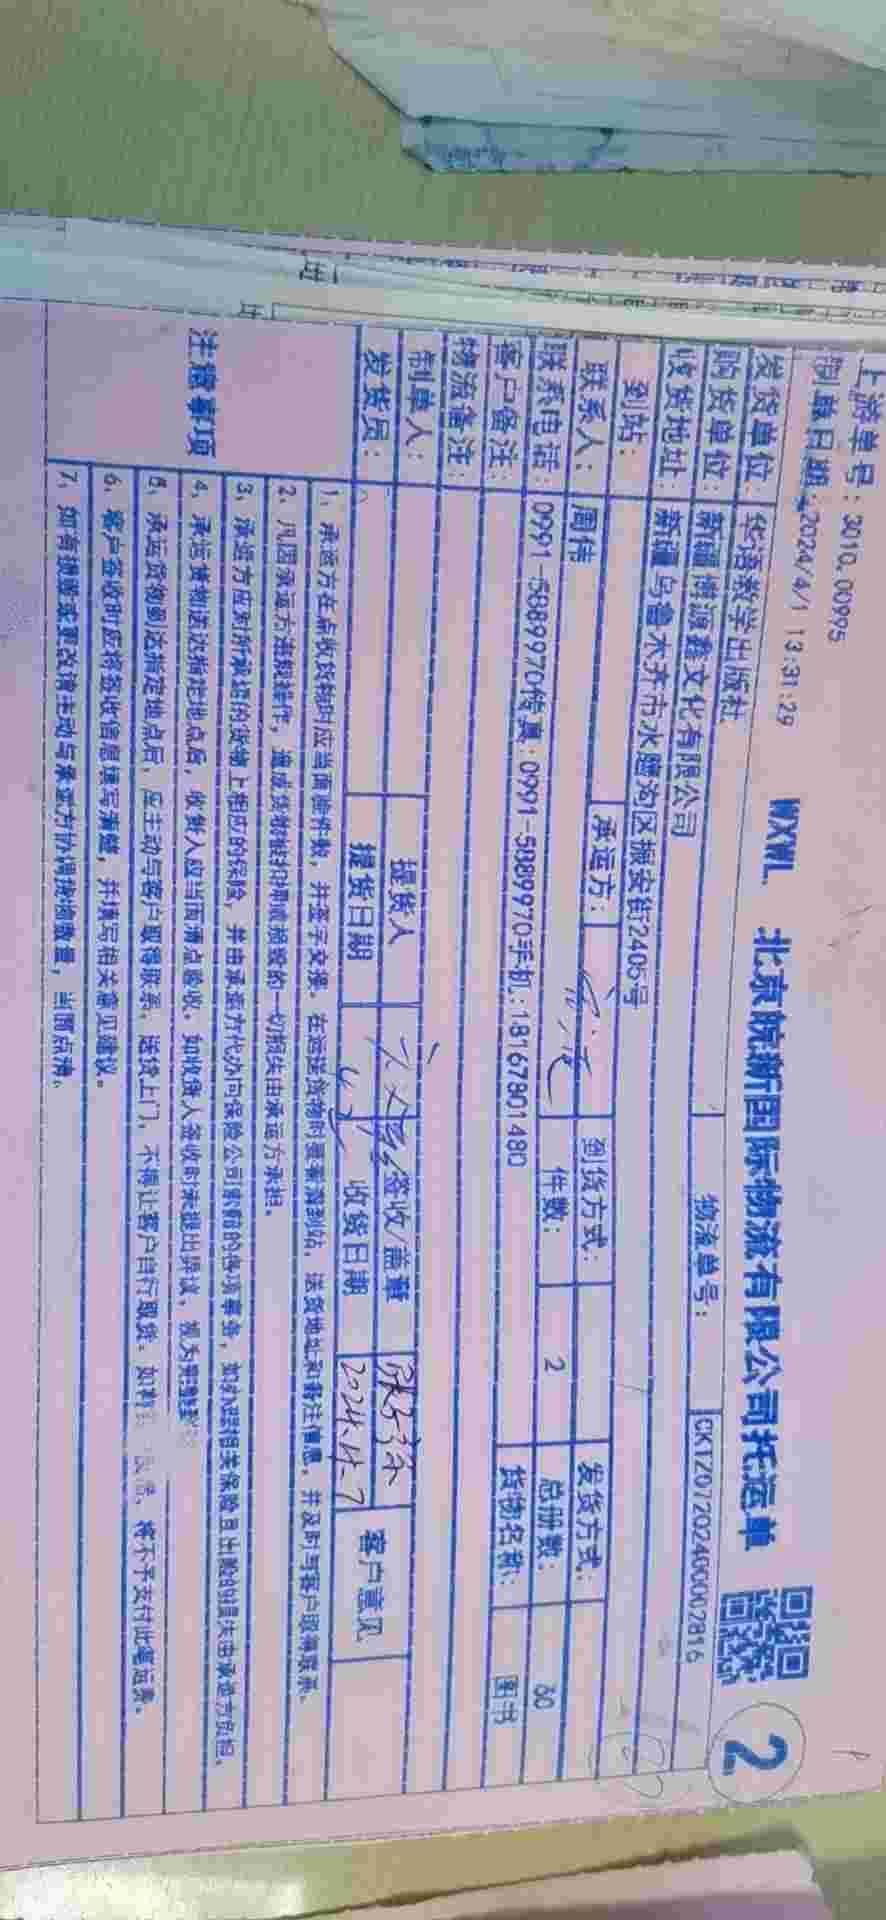 上游单号：3010.00995
制单日期：2024/4/1 13:31:29
WXWL 北京皖新国际物流有限公司托运单
2
发货单位： 华语教学出版社
物流单号： CKTZ07202400002816
购货单位： 新疆博源鑫文化有限公司
收货地址： 新疆乌鲁木齐市水磨沟区振安街2405号
到站： 承运方： 到货方式： 发货方式：
联系人： 周伟 件数： 2 总册数： 80
联系电话： 0991-5889970传真：0991-5889970手机：18167801480 货物名称： 图书
客户备注：
物流备注：
制单人： 提货人 签收/盖章 客户意见
发货员： 提货日期 收货日期 2024.4.7
注意事项
1、承运方在点收货物时应当面清件数，并签字交接。在运送货物时要看清到站、送货地址和备注信息，并及时与客户取得联系。
2、凡因承运方违规操作，造成货物被扣押或损毁的一切损失由承运方承担。
3、承运方应对所承运的货物上相应的保险，并由承运方代办向保险公司索赔的各项事务，
4、承运货物送达指定地点后，收货人应当面清点验收，如收货人签收时未提出异议，视为完整
5、承运货物到达指定地点后，应主动与客户取得联系，送货上门，不得让客户自行取货。将不予支付此笔运费。
6、客户签收时应将签收信息填写清楚，并填写相关意见建议。
7、如有损毁或更改请主动与承运方协调按渝数量，当面点清。